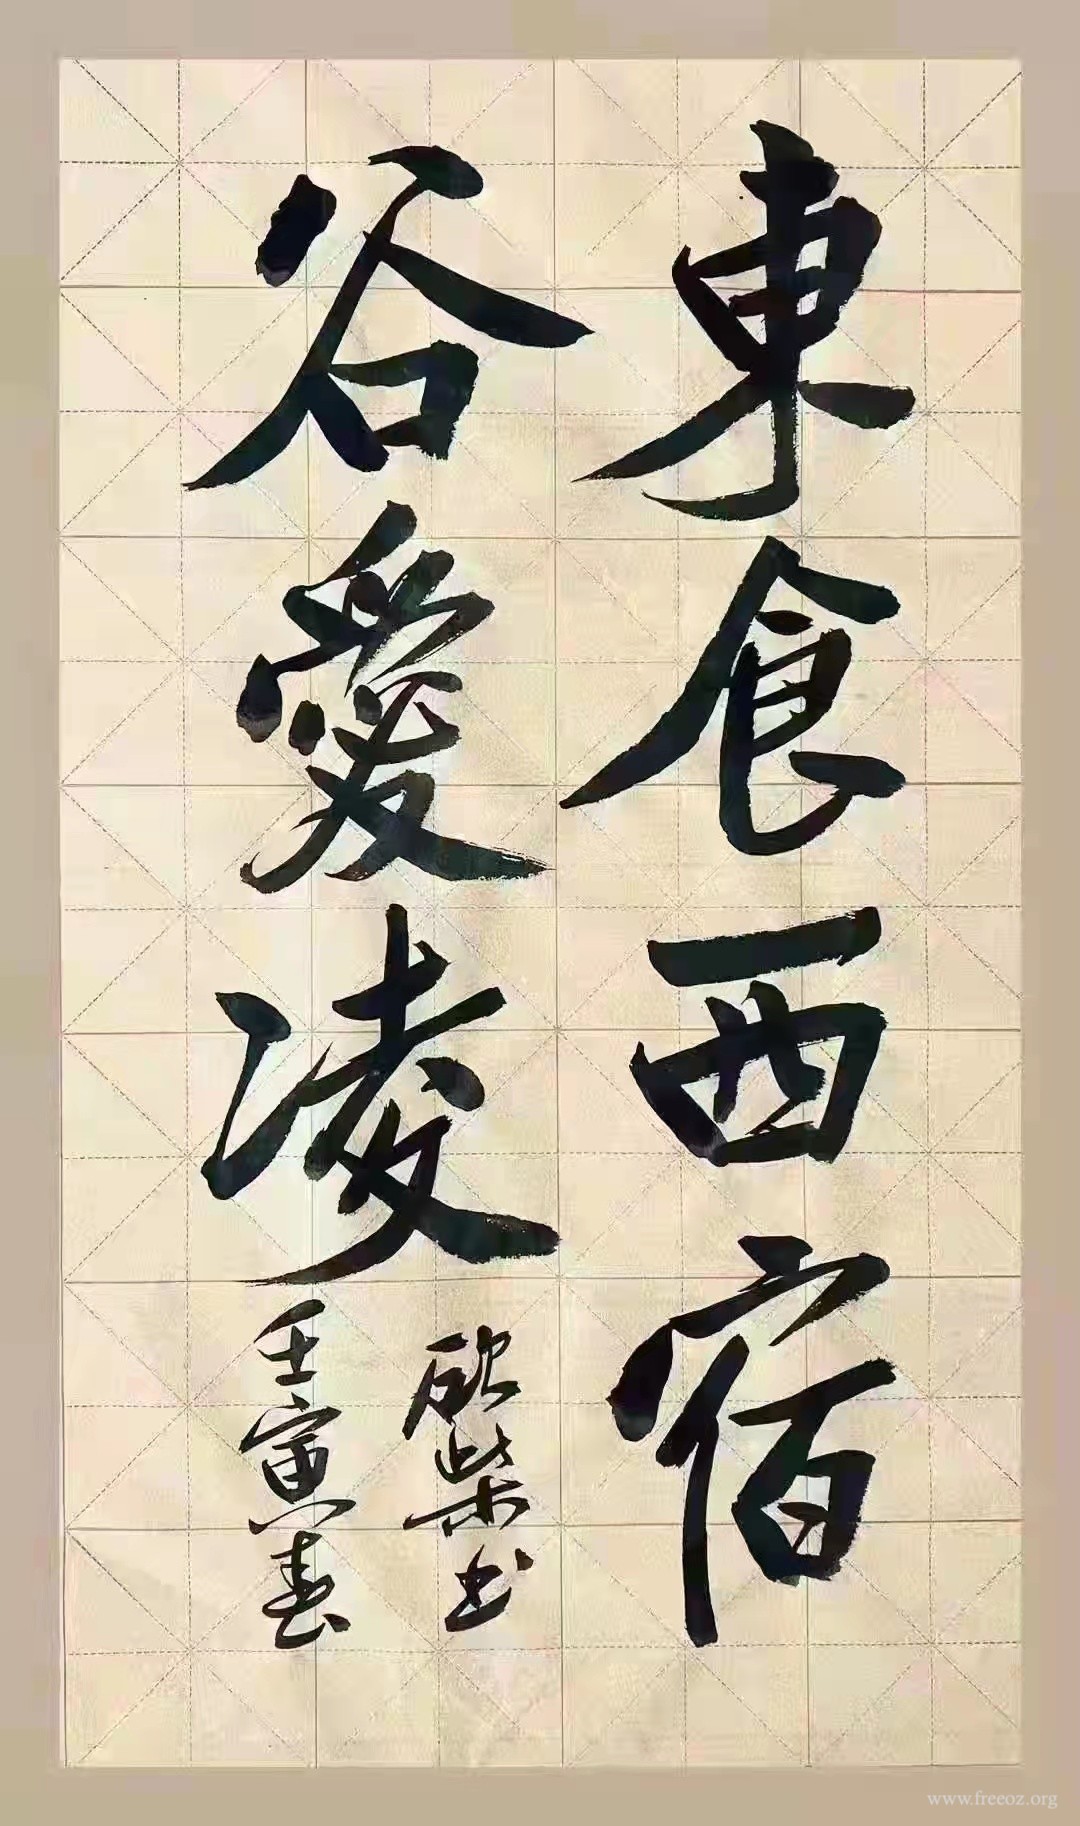 東食西宿
谷愛凌
欣柴书
壬寅春
www.freeoz.org